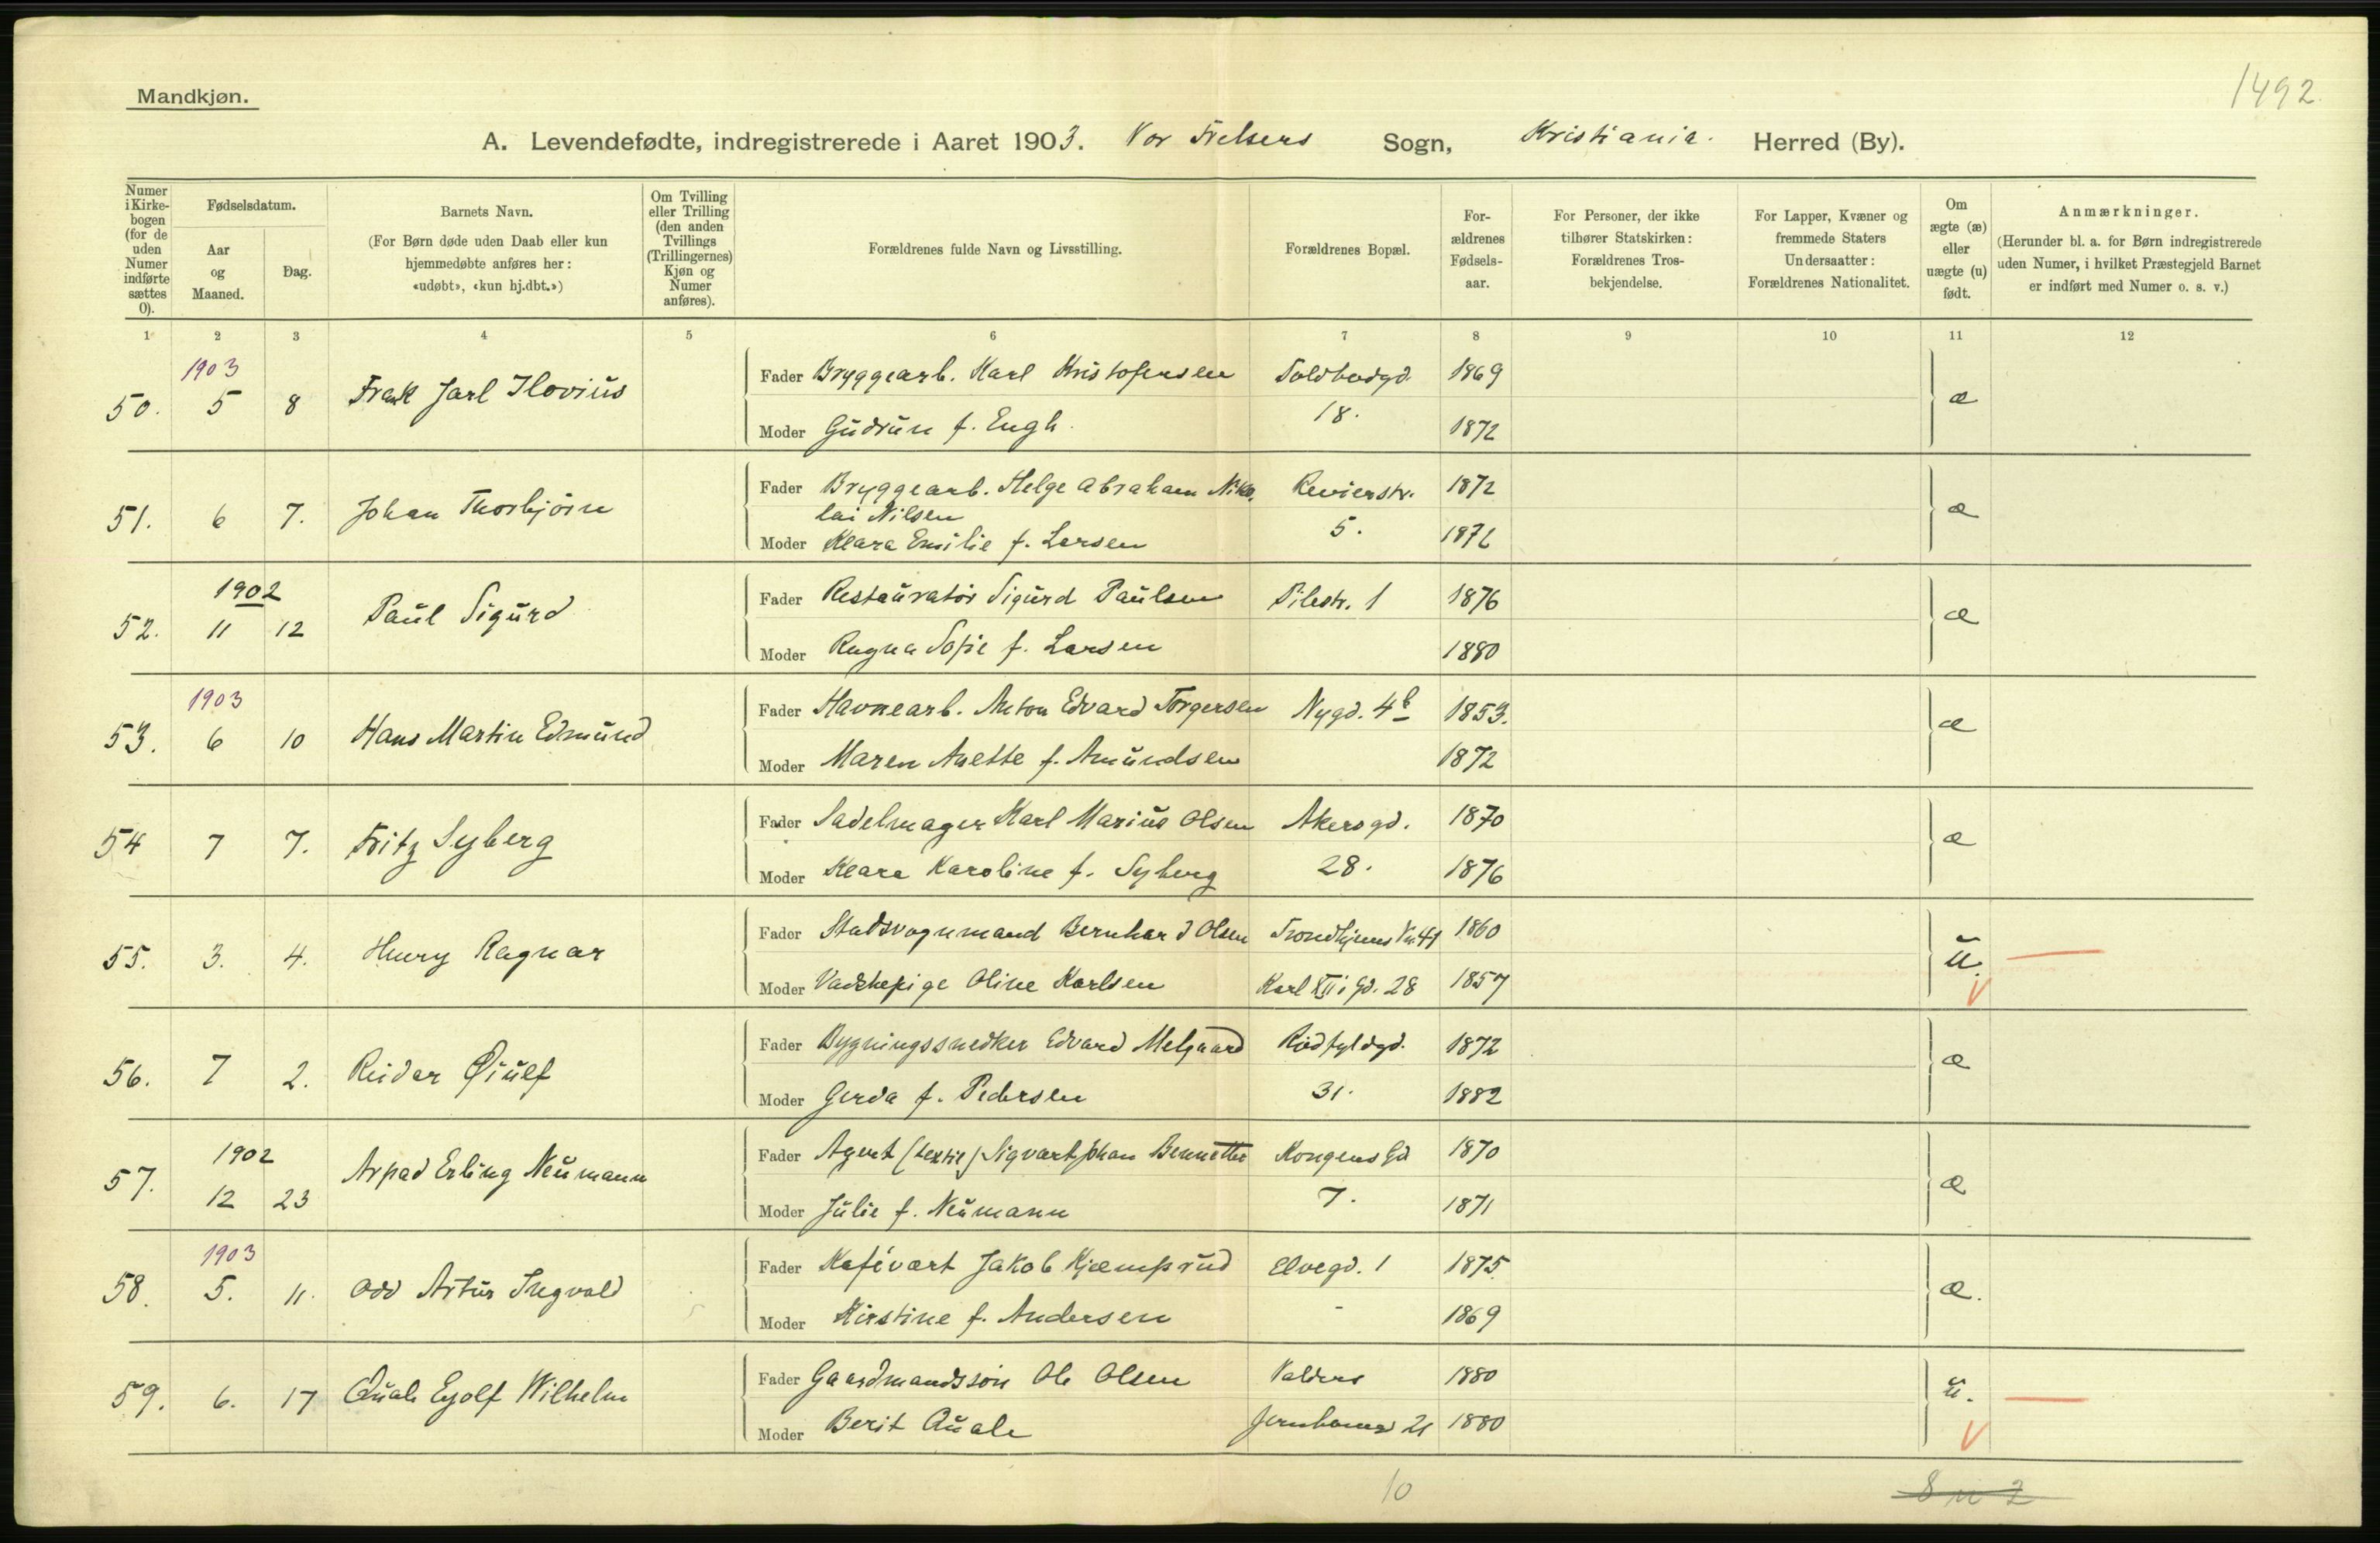 1492
Mandkjøn.
A. Levendefødte, indregistrerede i Aaret 1903. Vor Frelsers Sogn, Kristiania. Herred (By).
Numer i Kirke-bogen (for de uden Numer indførte sættes 0).
Fødselsdatum.
Aar og Maaned.
Dag.
Barnets Navn.
(For Børn døde uden Daab eller kun hjemmedøbte anføres her: «udøbt», «kun hj.dbt.»)
Om Tvilling eller Trilling (den anden Tvillings (Trillingernes) Kjøn og Numer anføres).
Forældrenes fulde Navn og Livsstilling.
Forældrenes Bopæl.
For-ældrenes Fødsels-aar.
For Personer, der ikke tilhører Statskirken: Forældrenes Tros-bekjendelse.
For Lapper, Kvæner og fremmede Staters Undersaatter: Forældrenes Nationalitet.
Om ægte (æ) eller uægte (u) født.
Anmærkninger.
(Herunder bl. a. for Børn indregistrerede uden Numer, i hvilket Præstegjeld Barnet er indført med Numer o. s. v.)
1 2 3 4 5 6 7 8 9 10 11 12
1903
50. 5 8 Frank Jarl Ilovius Fader Bryggearb. Karl Kristofersen Toldbodgd. 1869 æ
Moder Gudrun f. Engh. 18. 1872
51. 6 7. Johan Thorbjørn Fader Bryggearb. Helge Abraham Niko- Revierstr. 1872 æ
lai Nilsen 5.
Moder Klara Emilie f. Larsen
1902
52. 11 12 Paul Sigurd Fader Restauratør Sigurd Paulsen Pilestr. 1 1876 æ
Moder Ragna Sofie f. Larsen 1880
1903
53. 6 10 Hans Martin Edmund Fader Havnearb. Anton Edvard Torgersen Nygd. 4b 1853. æ
Moder Maren Anette f. Amundsen 1872
54 7 7. Fritz Syberg Fader Sadelmager Karl Marius Olsen Akersgd. 1870 æ
Moder Klara Karoline f. Syberg 28. 1876
55. 3. 4. Henry Ragnar Fader Stadsvognmand Bernhard Olsen Trondhjems V. 41 1860 u.
Moder Vadskepige Oline Karlsen Karl XII's Gd. 28 1857
56. 7 2. Reidar Øiulf Fader Bygningssnedker Edvard Melgaard Rødfyldgd. 1872 æ
Moder Gerda f. Pedersen 31. 1882
1902
57. 12 23 Arpad Erling Neumann Fader Agent Sigvart Johan Bennetter Kongens Gd 1870 æ
Moder Julie f. Neumann 7. 1871
1903
58. 5. 11. Odd Artur Ingvald Fader Kafévært Jakob Kjæmprud Elvegd. 1 1875 æ.
Moder Kirstine f. Andersen - 1869
59. 6. 17 Quale Eyolf Wilhelm Fader Gaardmandssøn Ole Olsen Valders 1880 u.
Moder Berit Quale 21 1880
10 8 u 2